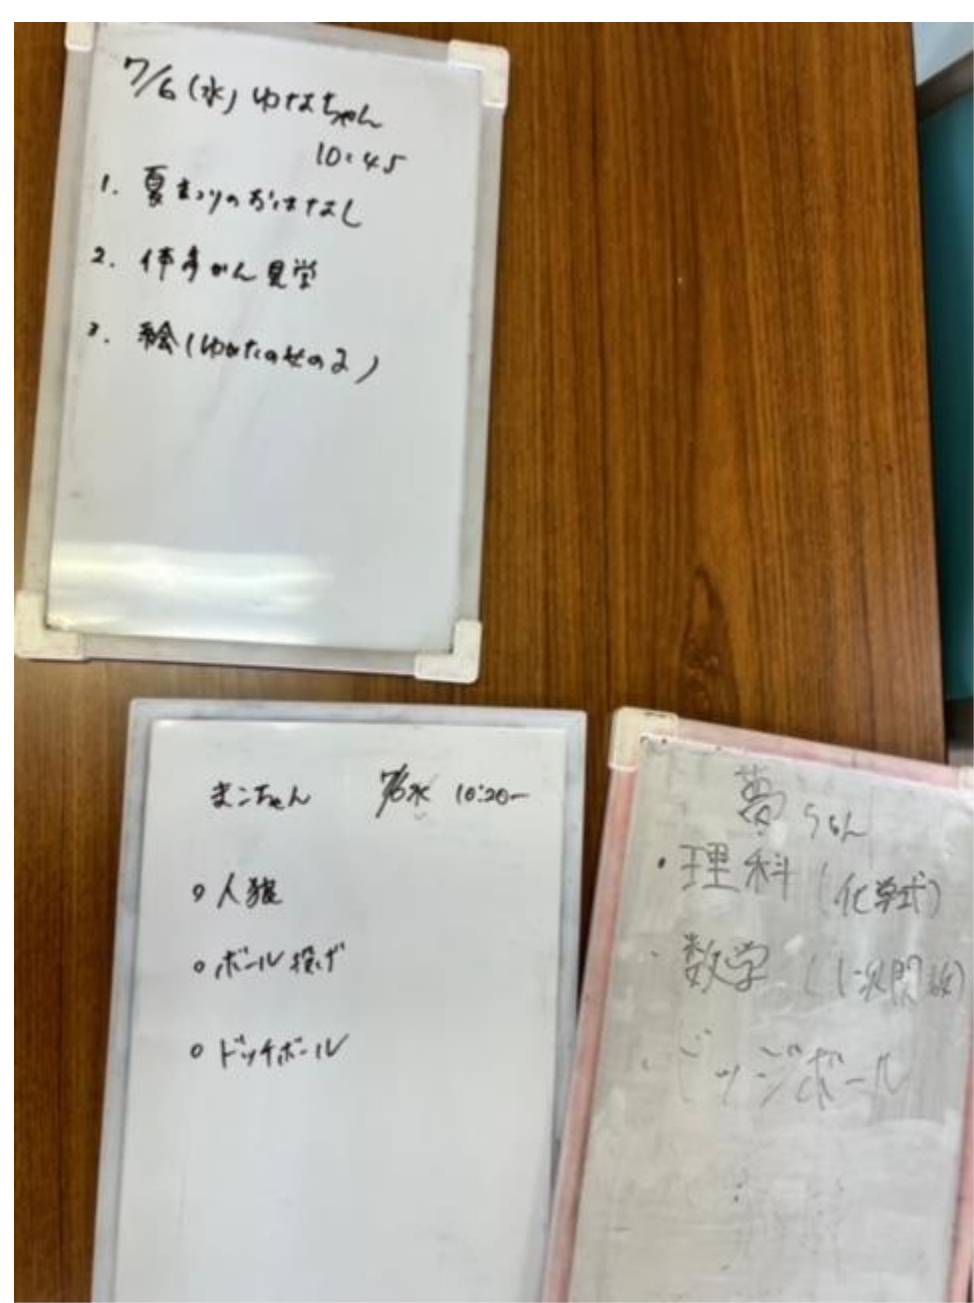 7/6(水) ゆなちゃん
10:45
1. 夏まつりのおはなし
2. 体育かん見学
3. 絵(ゆかたの
まこちゃん 7/6水 10:20~
○人狼
○ボール投げ
○ドッチボール
夢ちゃん
・理科(化学式)
・数学(1次関数)
・ドッジボール